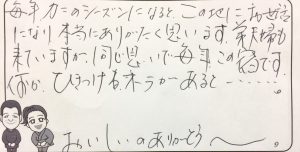 毎年カニのシーズンになると、この地にお世話
になり本当にありがたく思います。弟夫婦も
来ていますが、同じ思いで毎年この宿です。
何か、ひきつけるオーラがあると………
おいしいのありがとう〜